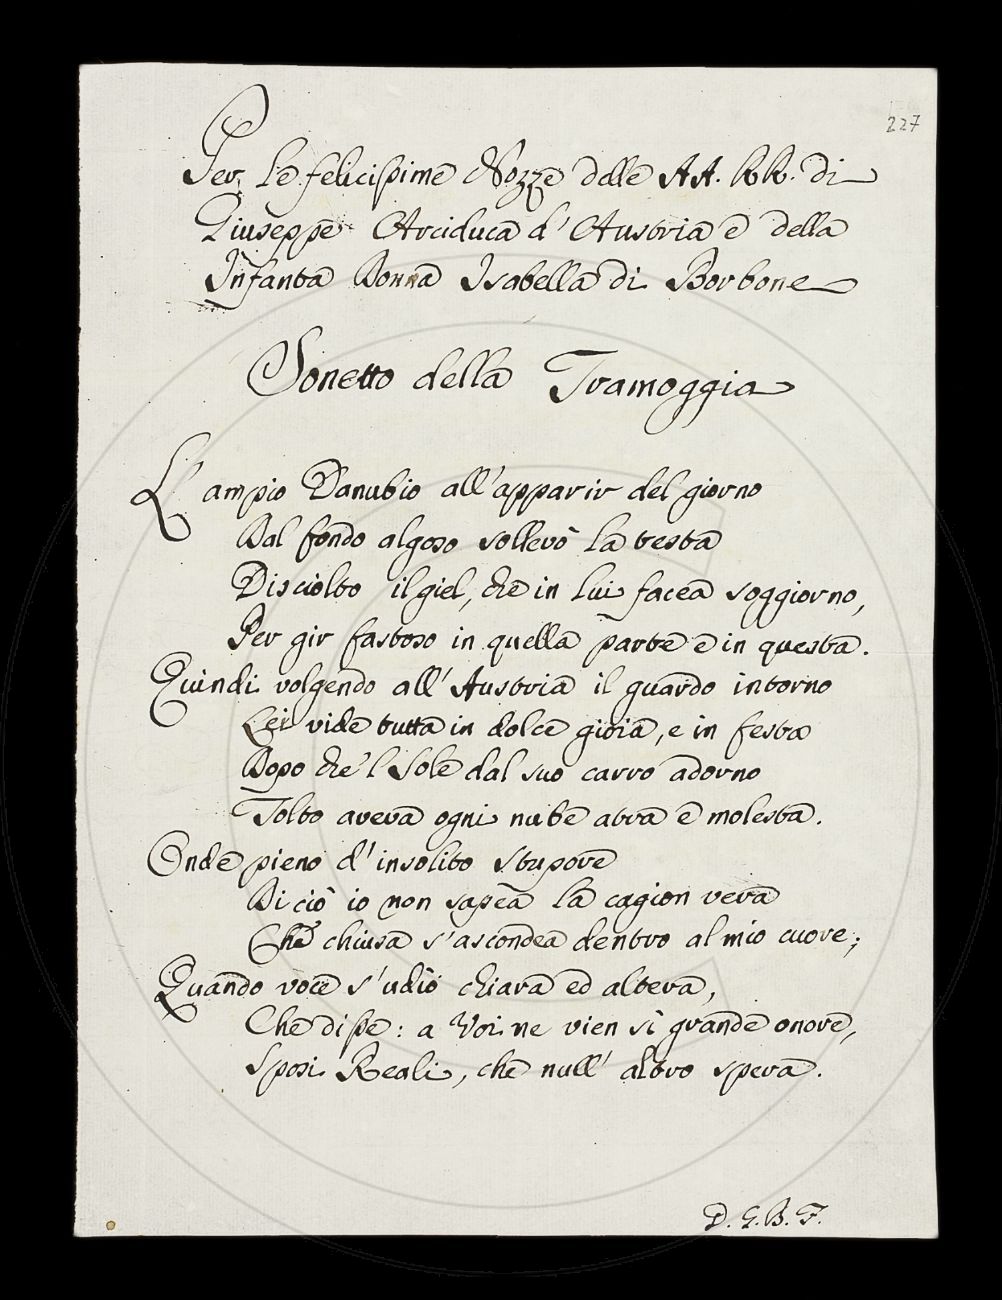 227
Per le felicissime Nozze delle AA. RR. di
Giuseppe Arciduca d'Austria e della
Infanta Donna Isabella di Borbone
Sonetto della Tramoggia
L'ampio Danubio all'apparir del giorno
Dal fondo algoso sollevò la testa
Disciolto il giel, che in lui facea soggiorno,
Per gir fastoso in quella parte e in questa.
Quindi volgendo all'Austria il guardo intorno
Lei vide tutta in dolce gioia, e in festa
Dopo che'l Sole dal suo carro adorno
Tolto aveva ogni nube atra e molesta.
Onde pieno d'insolito stupore
Di ciò io non sapea la cagion vera
Che chiusa s'ascondea dentro al mio cuore;
Quando voce s'udìo chiara ed altera,
Che disse: a Voi ne vien sì grande onore,
Sposi Reali, che null'altro spera.
D. G. B. F.